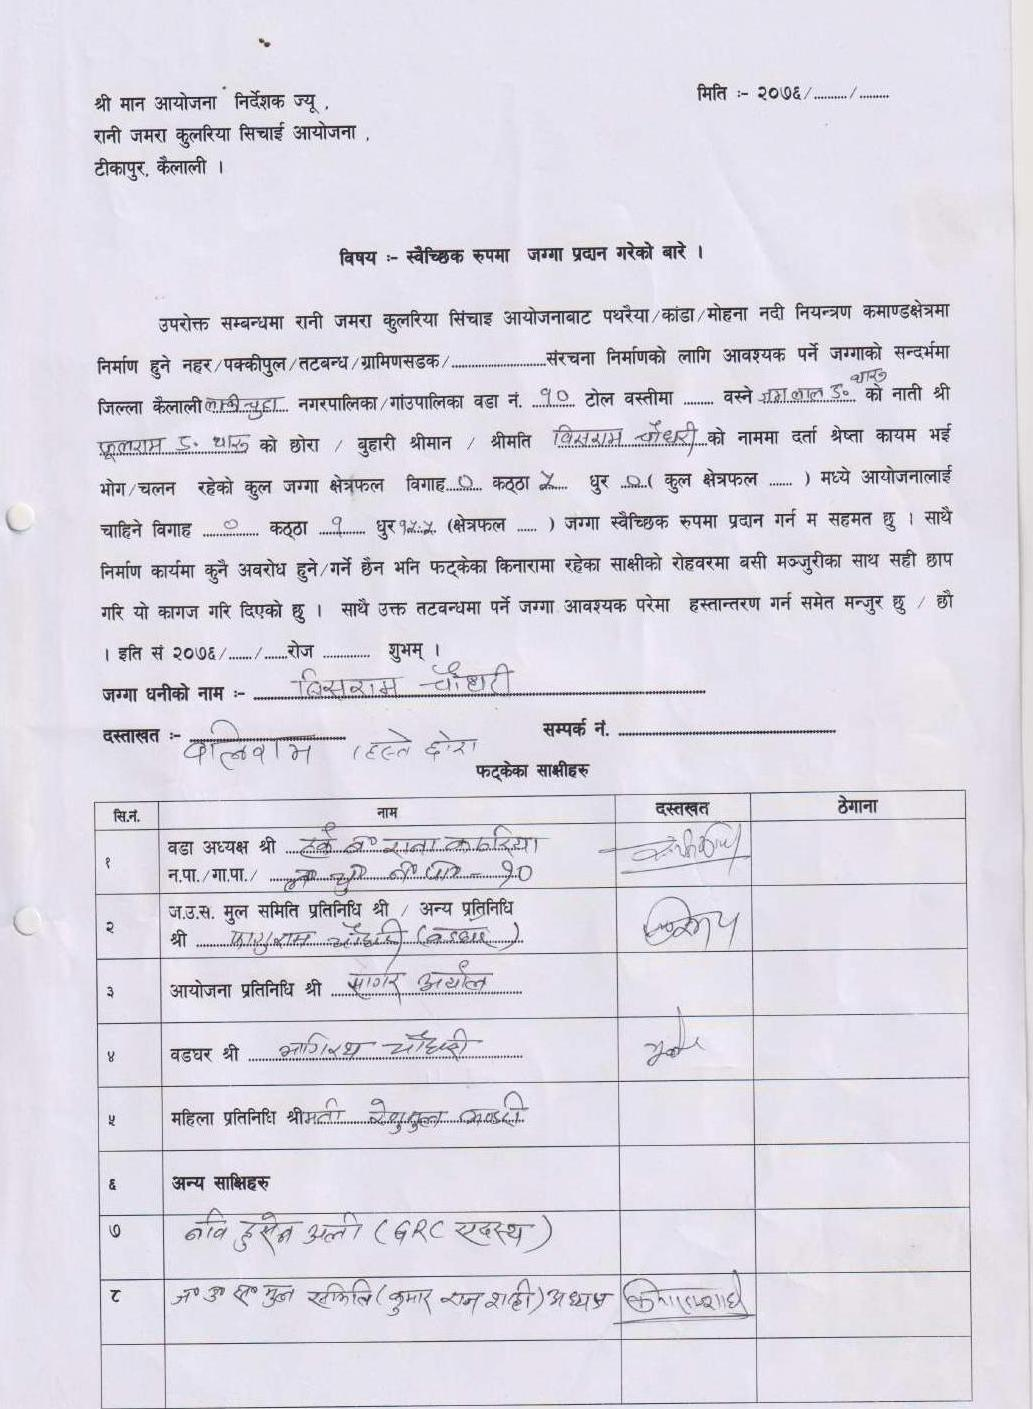 श्री मान आयोजना निर्देशक ज्यू ,
मिति :- २०७६/........./.........
रानी जमरा कुलरिया सिचाई आयोजना ,
टीकापुर, कैलाली ।
विषय :- स्वैच्छिक रुपमा जग्गा प्रदान गरेको बारे ।
उपरोक्त सम्बन्धमा रानी जमरा कुलरिया सिंचाइ आयोजनाबाट पथरैया/कांडा/मोहना नदी नियन्त्रण कमाण्डक्षेत्रमा
निर्माण हुने नहर/पक्कीपुल/तटबन्ध/ग्रामिणसडक/.........................संरचना निर्माणको लागि आवश्यक पर्ने जग्गाको सन्दर्भमा
जिल्ला कैलाली नगरपालिका/गांउपालिका वडा नं. १० टोल वस्तीमा ........ वस्ने लाल ड० थारु को नाती श्री
फूलराम ड० थारु को छोरा / बुहारी श्रीमान / श्रीमति विसराम चौधरी को नाममा दर्ता श्रेष्ता कायम भई
भोग/चलन रहेको कुल जग्गा क्षेत्रफल विगाह ० कठ्ठा ५ धुर ० ( कुल क्षेत्रफल ...... ) मध्ये आयोजनालाई
चाहिने विगाह ० कठ्ठा १ धुर १५.५ (क्षेत्रफल ..... ) जग्गा स्वैच्छिक रुपमा प्रदान गर्न म सहमत छु । साथै
निर्माण कार्यमा कुनै अवरोध हुने/गर्ने छैन भनि फट्केका किनारामा रहेका साक्षीको रोहवरमा बसी मञ्जुरीका साथ सही छाप
गरि यो कागज गरि दिएको छु । साथै उक्त तटवन्धमा पर्ने जग्गा आवश्यक परेमा हस्तान्तरण गर्न समेत मन्जुर छु / छौ
। इति सं २०७६/......./......रोज ............ शुभम् ।
जग्गा धनीको नाम :- विसराम चौधरी
दस्ताखत :- हस्ते छोरा
सम्पर्क नं. ..............................
फट्केका साक्षीहरु
सि.नं. नाम दस्तखत ठेगाना
१ वडा अध्यक्ष श्री
न.पा./गा.पा./ १०
२ ज.उ.स. मुल समिति प्रतिनिधि श्री / अन्य प्रतिनिधि
श्री फागुराम चौधरी (वडघर)
३ आयोजना प्रतिनिधि श्री सागर अर्याल
४ वडघर श्री भागिरथ चौधरी
५ महिला प्रतिनिधि श्रीमती
६ अन्य साक्षिहरु
७ नवि हुसेन अली (GRC सदस्य)
८ ज० उ० स० मुल समिति (कुमार शाही) अध्यक्ष